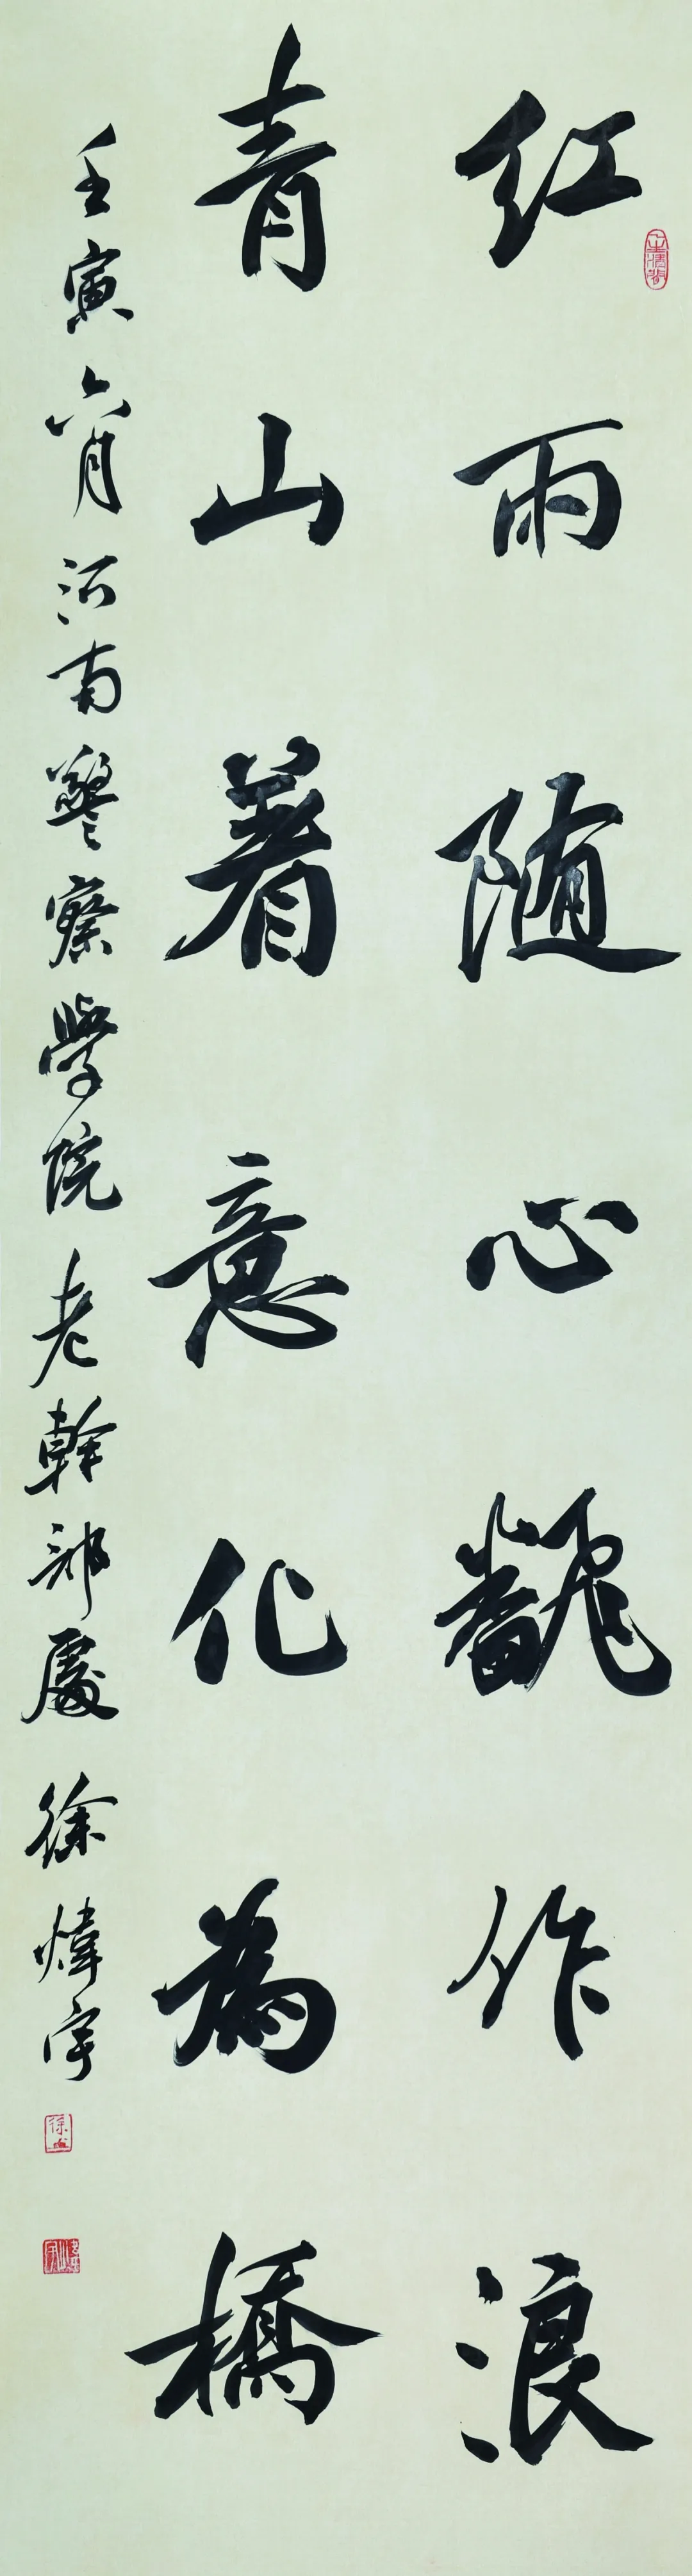 红雨随心翻作浪
青山着意化為橋
壬寅六月河南警察學院老幹部處徐煒宇